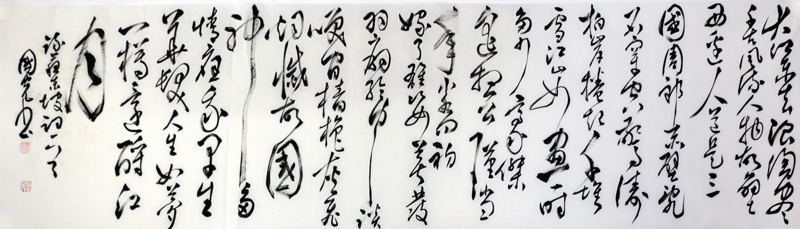 大江東去浪淘盡
千古風流人物故壘
西邊人道是三
國周郎赤壁亂
石穿空驚濤
拍岸捲起千堆
雪江山如畫一時
多少豪傑
遙想公瑾當
年小喬初
嫁了雄姿英發
羽扇綸巾談
笑間檣櫓灰飛
煙滅故國
神遊多
情應笑我早生
華髮人生如夢
一樽還酹江
月
錄蘇東坡詞一首